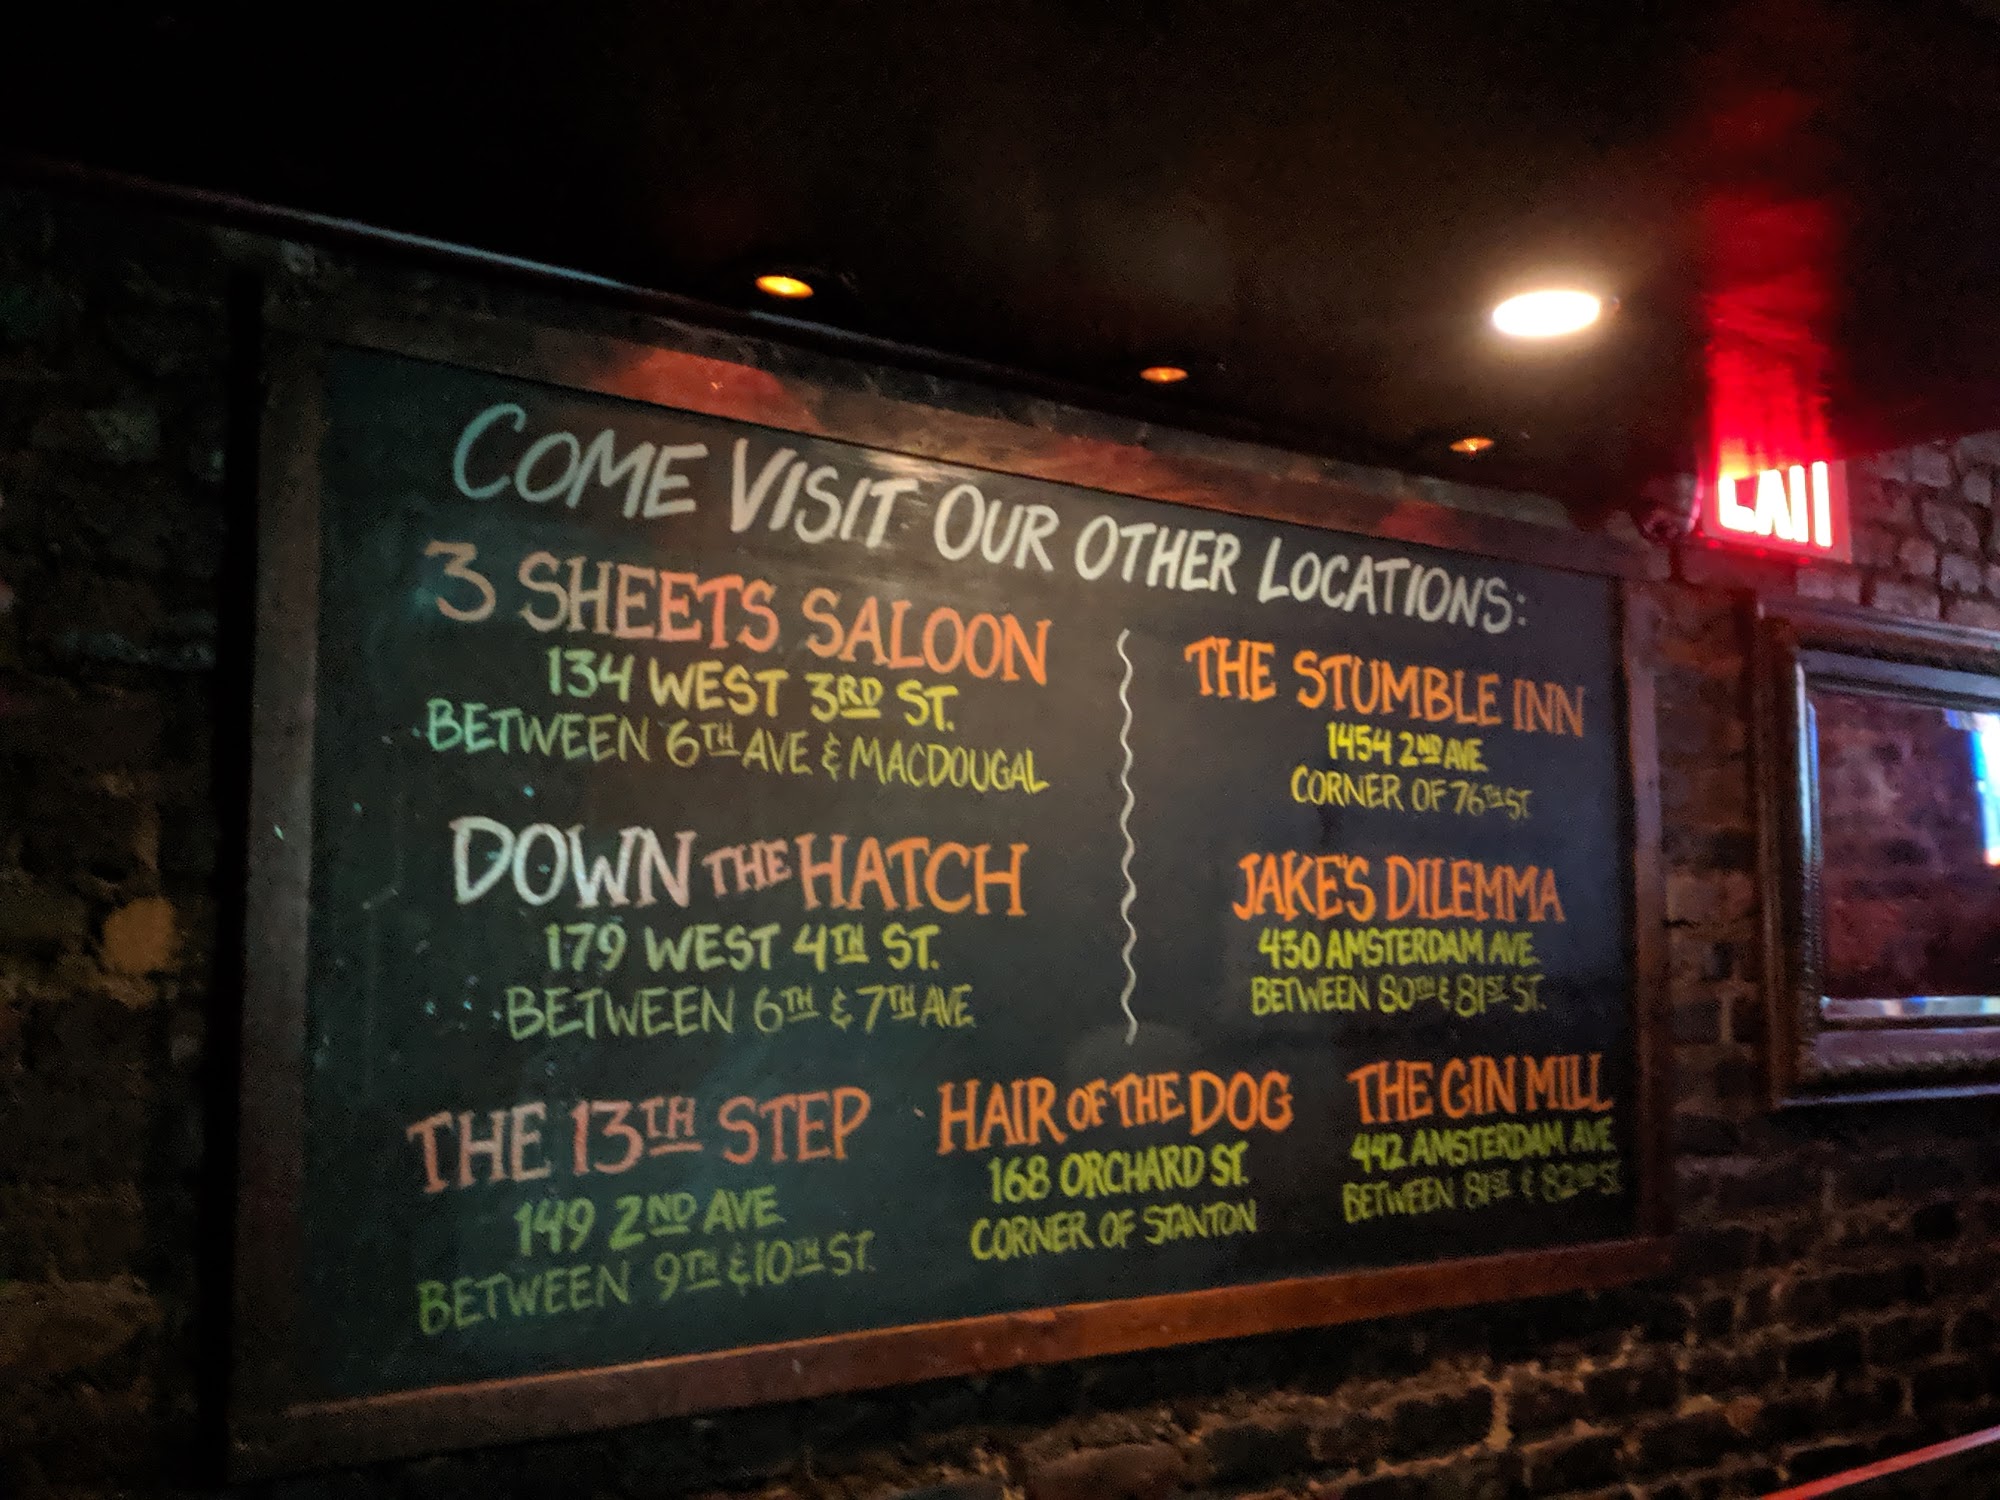 COME VISIT OUR OTHER LOCATIONS:
3 SHEETS SALOON
134 WEST 3RD ST.
BETWEEN 6TH AVE & MACDOUGAL
DOWN THE HATCH
179 WEST 4TH ST.
BETWEEN 6TH & 7TH AVE
THE STUMBLE INN
1454 2ND AVE.
CORNER OF 76TH ST.
JAKE'S DILEMMA
430 AMSTERDAM AVE.
BETWEEN 80TH & 81ST ST.
THE 13TH STEP
149 2ND AVE
BETWEEN 9TH & 10TH ST.
HAIR OF THE DOG
168 ORCHARD ST.
CORNER OF STANTON
THE GIN MILL
442 AMSTERDAM AVE
BETWEEN 81ST & 82ND ST.
EXIT